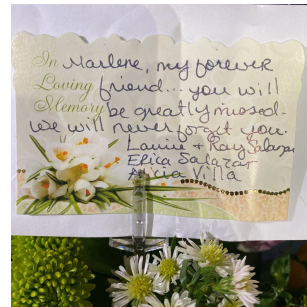 In
Loving
Memory
Marlene, my forever
friend... you will
be greatly missed-
we will never forget you.
Laurie + Ray Salazar
Erica Salazar
Alicia Villa